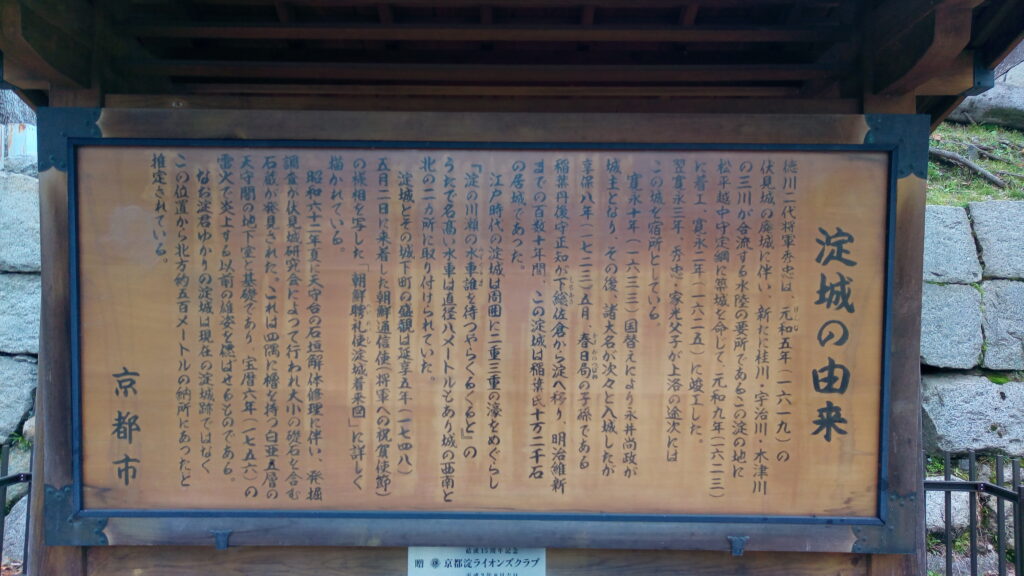 淀城の由来
徳川二代将軍秀忠は、元和五年(一六一九)の
伏見城の廃城に伴い、新たに桂川・宇治川・木津川
の三川が合流する水陸の要所であるこの淀の地に
松平越中守定綱に築城を命じて、元和九年(一六二三)
に着工、寛永二年(一六二五)に竣工した。
翌寛永三年、秀忠・家光父子が上洛の途次には
この城を宿所としている。
寛永十年(一六三三)国替えにより永井尚政が
城主となり、その後、諸大名が次々と入城したが
享保八年(一七二三)五月、春日局の子孫である
稲葉丹後守正知が下総佐倉から淀へ移り、明治維新
までの百数十年間、この淀城は稲葉氏十万二千石
の居城であった。
江戸時代の淀城は周囲に二重三重の濠をめぐらし
『淀の川瀬の水車誰を待つやらくるくると』の
うたで名高い水車は直径八メートルもあり城の西南と
北の二カ所に取り付けられていた。
淀城とその城下町の盛観は延享五年(一七四八)
五月二日に来着した朝鮮通信使(将軍への祝賀使節)
の様相を写した「朝鮮聘礼使淀城着来図」に詳しく
描かれている。
昭和六十二年夏に天守台の石垣解体修理に伴い、発掘
調査が伏見城研究会によって行われ大小の礎石を含む
石蔵が発見された。これは四隅に櫓を持つ白亜五層の
天守閣の地下室と基礎であり、宝暦六年(一七五六)の
雷火で炎上する以前の雄姿を偲ばせるものである。
なお淀君ゆかりの淀城は現在の淀城跡ではなく
この位置から北方約五百メートルの納所にあったと
推定されている。
京都市
結成15周年記念
贈 京都淀ライオンズクラブ